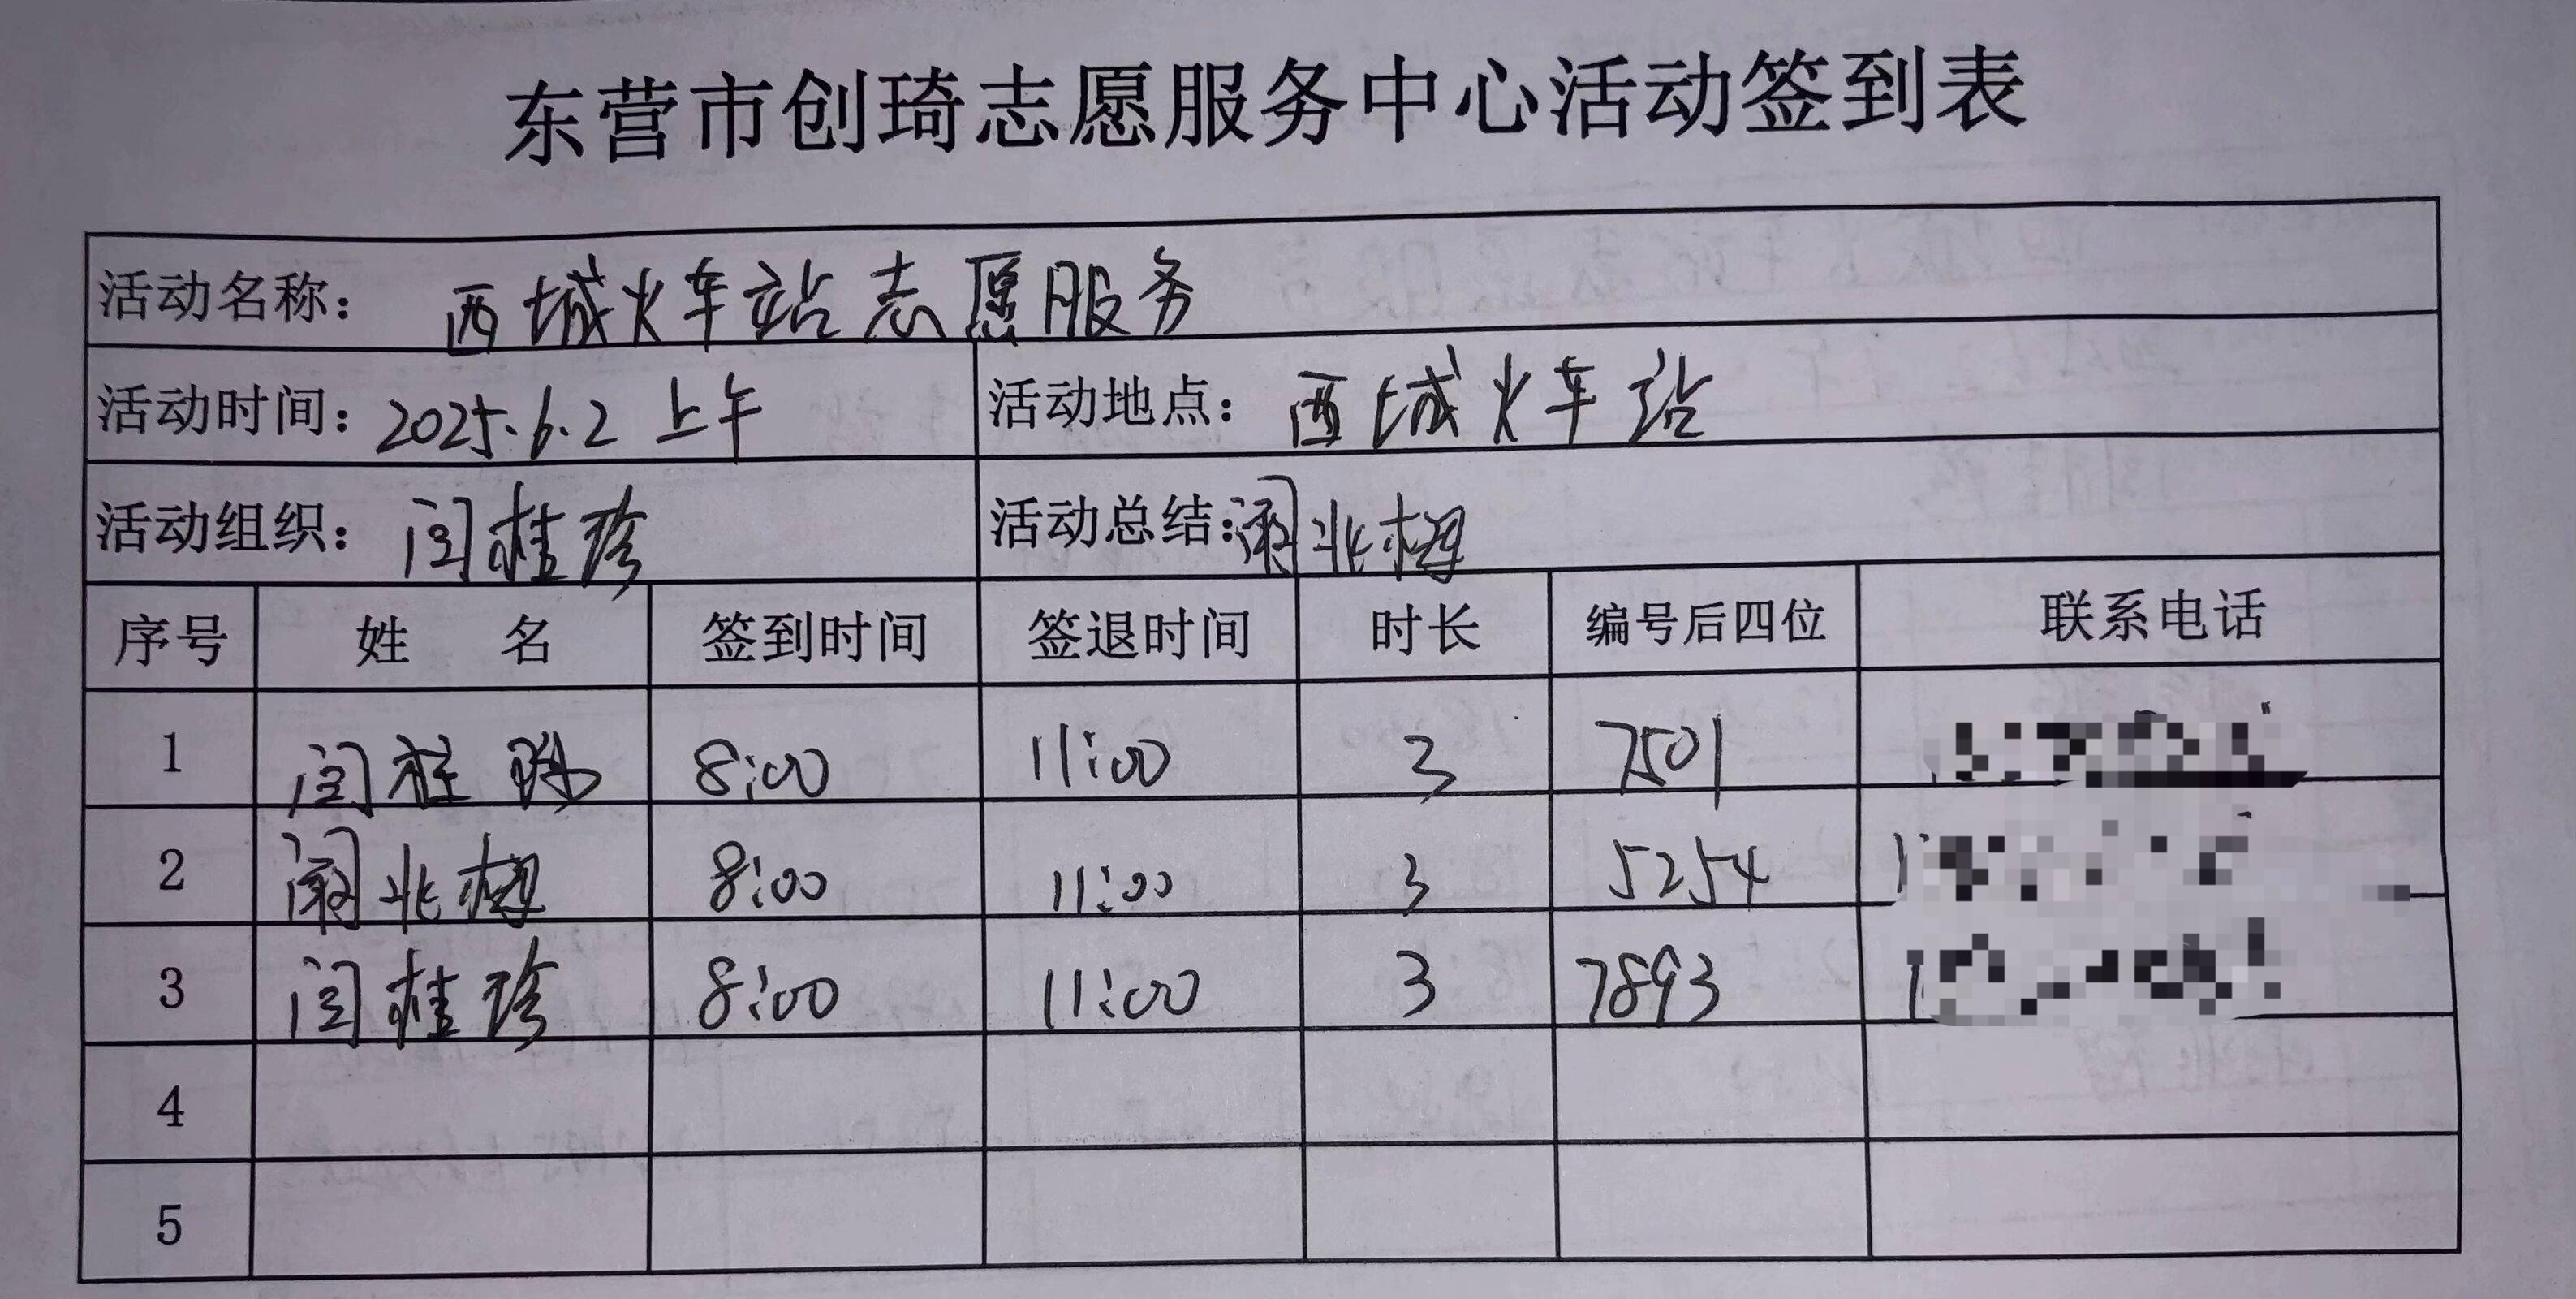 东营市创琦志愿服务中心活动签到表
活动名称： 西城火车站志愿服务
活动时间：2025.6.2 上午 活动地点： 西城火车站
活动组织： 闫桂珍 活动总结：
序号 姓 名 签到时间 签退时间 时长 编号后四位 联系电话
1 闫桂 8:00 11:00 3 7501
2 8:00 11:00 3 5254
3 闫桂珍 8:00 11:00 3 7893
4
5